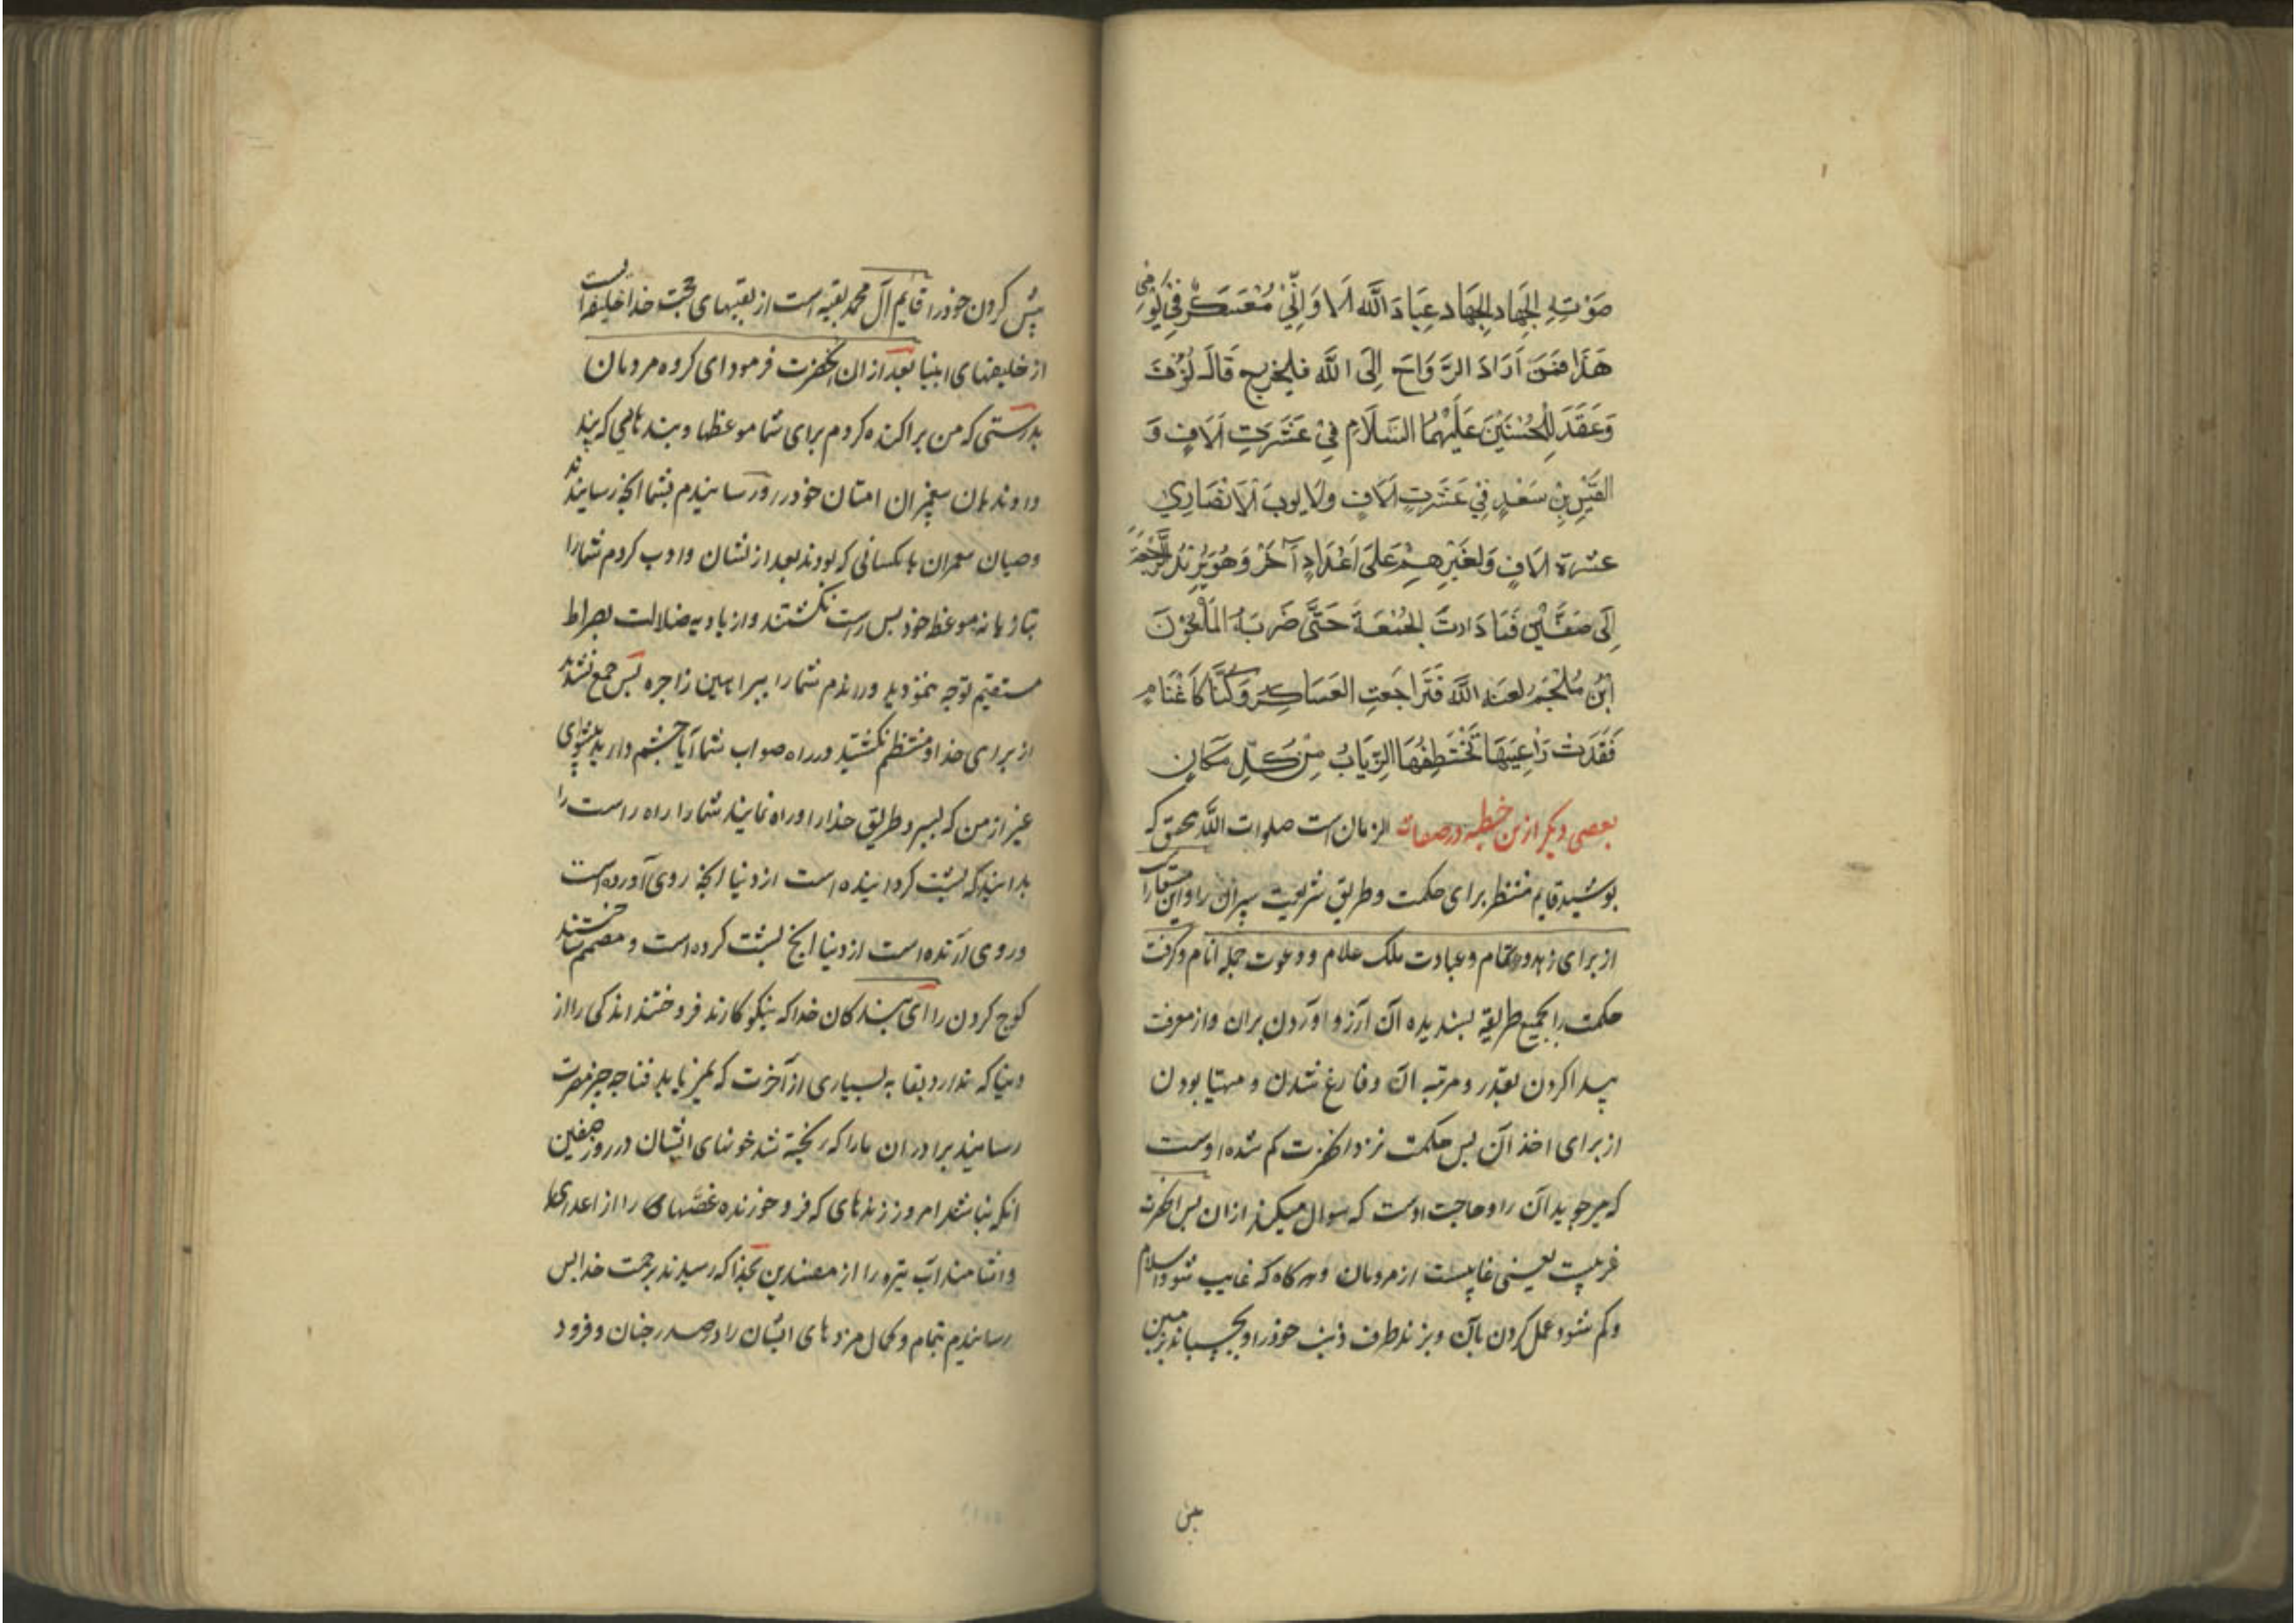 صَوْتِهِ الجِهَاد الجِهَاد عِبَادَ اللَّه اَلَا وَاِنِّي مُعَسْكِرٌ فِي يَوْمِي
هَذَا فَمَنْ اَرَادَ الرَّوَاحَ اِلَى اللَّه فليخرج قَالَ نُوْفٌ
وَعَقَدَ لِلْحُسَيْنِ عَلَيْهِمَا السَّلَام فِي عَشَرَتِ اَلَافٍ وَ
القَيْسِ بْنِ سَعْدٍ فِي عَشَرَتِ اَلَافٍ ولَايوبَ الْاَنْصَارِي
عشرة الَافٍ وَلِغَيْرِهِمْ عَلَى اَعْدَادٍ آخَرَ وَهُوَ يُرِيْدُ الرَّجْعَةَ
اِلَى صفّينَ فَمَا دَارتَ الجُمْعَةَ حَتَّى ضَرَبَهُ المَلْعُوْنَ
ابْنُ مُلْجَمْ لعنه اللَّه فَتَرَاجَعتِ العَسَاكِرَ وَكُنَّا كَاَغْنَامٍ
فَقَدَتْ رَاعِيَهَا تَخْتَطِفُهَا الذِّيَابُ مِنْ كُلِّ مَكَانٍ
بعضی دیکر ازین خطبه در صفات الزمان است صلوات اللّه بتحقیق که
پوشید قایم منتظر برای حکمت و طریق شریعت سپر آن را و این استعاره
از برای زهد و عبادت ملک علام و دعوت جمله انام و گرفت
حکمت را بجمیع طریقه پسندیده آن آرزو آوردن بران و از معرفت
پیدا کردن بقدر و مرتبه آن و فارغ شدن و مهیا بودن
از برای اخذ آن پس حکمت نزد انحضرت کم شده اوست
که میجوید آن را و حاجت اوست که سوال میکند ازان پس انحضرت
غریبست یعنی غایبست از مردمان و هرکاه که غایب شود اسلام
و کم شود عمل کردن بآن و بزند طرف ذنب خود را و بچسباند بزمین
پیش
پیش کردن خود را قایم آل محمد بقیه است از بقیهای حجت خدا خلیفه است
از خلیفهای انبیا بعد ازان انحضرت فرمود ای کروه مردمان
بدرستی که من پراکنده کردم برای شما موعظها و پندهایی که پند
دادند بان پیغمبران امتان خود را و رسانیدم بشما انچه رسانیدند
وصیان پیغمبران بکسانی که بودند بعد از نشان و ادب کردم شما را
بتازیانه موعظه خود پس راست نکشتند و از بادیه ضلالت بصراط
مستقیم توجه ننمودید و راندم شما را ببراهین زاجره پس جمع نشدند
از برای خدا و منتظم نکشتید در راه صواب شما آیا چشم دارید پیشوای
غیر از من که بسپرد طریق خدا را و راه نماید شما را راه راست را
بدانید که پشت کردانیده است از دنیا انچه روی آورده است
و روی آرنده است از دنیا انچه پشت کرده است و مصمم ساختند
کوچ کردن را ای بندکان خدا که نیکوکارند فروختند اندکی را از
دنیا که ندارد بقا به بسیاری از آخرت که نمی‌یابد فنا چه چیز مضرت
رسانید برادران ما را که ریخته شد خونهای ایشان در روز صفین
انکه نباشند امروز زندهای که فرو خورنده غصّها را از اعدای ما
و اشامند آب تیره را از مفسدین بخدا که رسیدند برحمت خدا پس
رسانیدم بتمام و کمال مزدهای ایشان را در صدر جنان و فرود